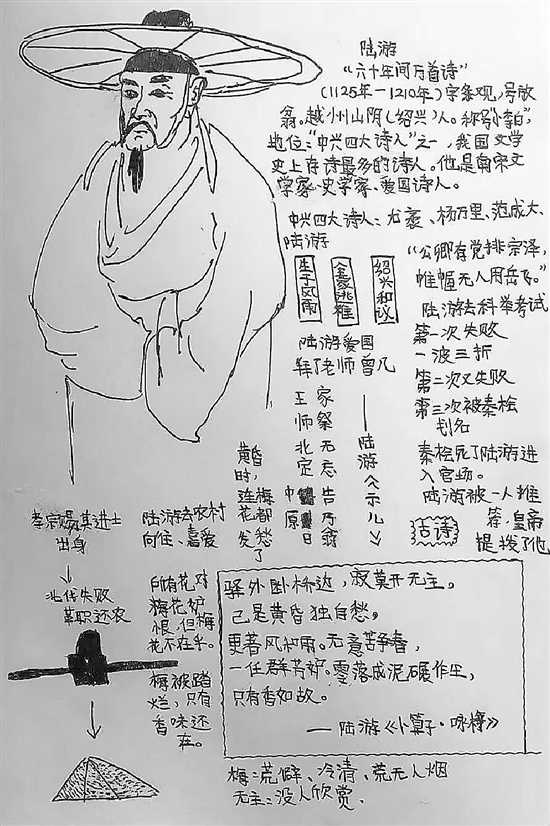 陆游
“六十年间万首诗”
(1125年—1210年)字务观,号放
翁。越州山阴(绍兴)人。称号“小李白”,
地位:“中兴四大诗人”之一,我国文学
史上存诗最多的诗人。他是南宋文
学家、史学家、爱国诗人。
中兴四大诗人:尤袤、杨万里、范成大、
陆游
生于风雨
金豪北框
绍兴和议
“公卿有党排宗泽,
帷幄无人用岳飞。”
陆游去科举考试
第一次失败
一波三折
第二次又失败
第三次被秦桧
划名
秦桧死了陆游进
入官场。
陆游被一人推
荐,皇帝
提拨了他
陆游爱国
拜了老师曾几
王师北定中原日
家祭无忘告乃翁
——陆游《示儿》
古诗
黄昏时,
连梅花都发愁了
孝宗赐其进士
出身
北伐失败
革职还农
陆游去农村
向往、喜爱
所有花对
梅花妒
恨,但梅
花不在乎。
梅被踏
烂,只有
香味还
在。
驿外断桥边,寂莫开无主。
已是黄昏独自愁,
更著风和雨。无意苦争春,
一任群芳妒。零落成泥碾作尘,
只有香如故。
——陆游《卜算子·咏梅》
梅:荒僻、冷清、荒无人烟
无主:没人欣赏.